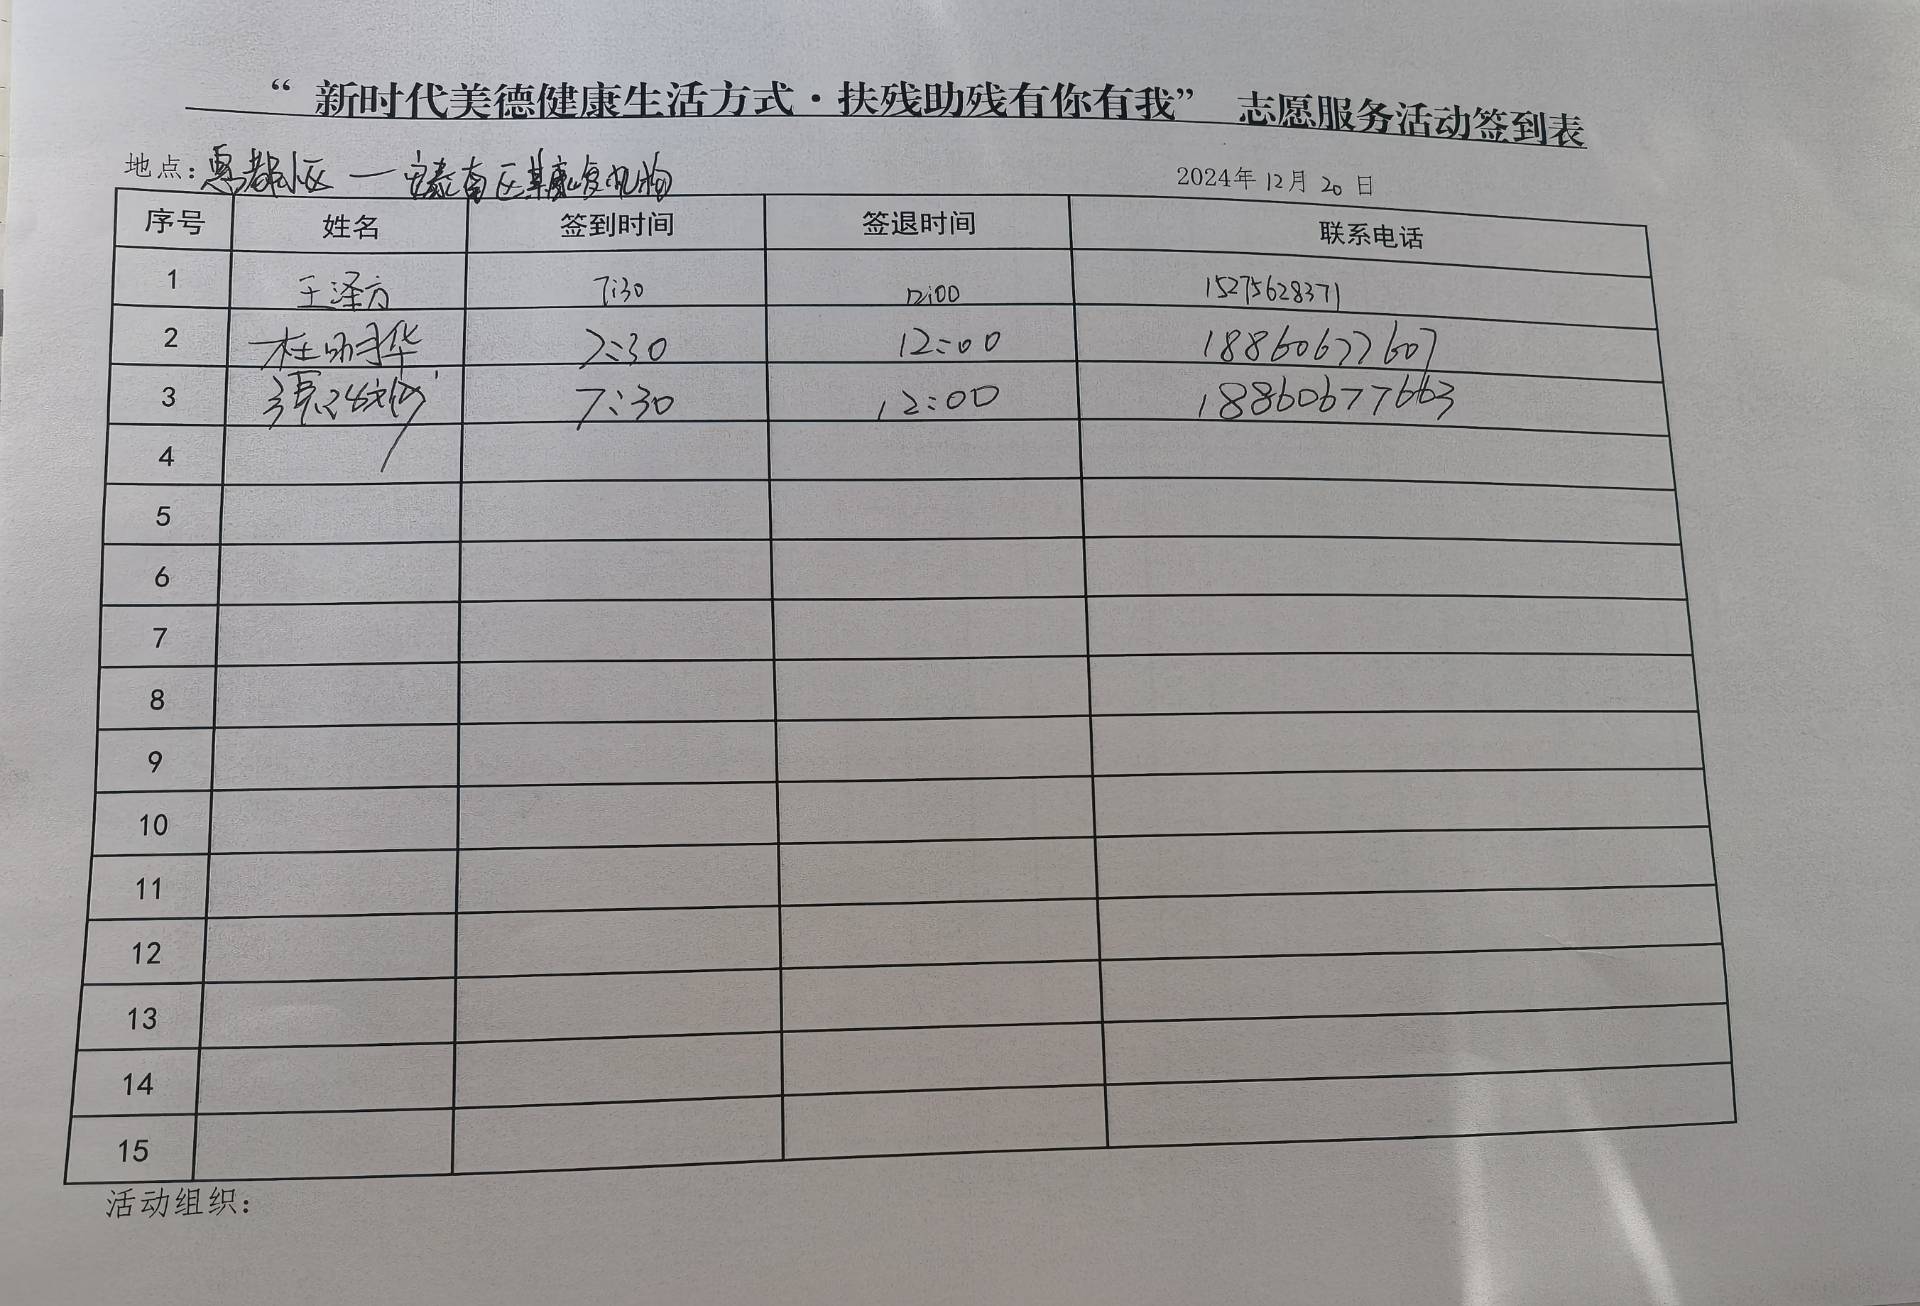 “新时代美德健康生活方式·扶残助残有你有我” 志愿服务活动签到表
地点：惠都小区 — 南区康复机构 2024年12月20日
序号 姓名 签到时间 签退时间 联系电话
1 王泽方 7:30 12:00 15275628371
2 杜明华 7:30 12:00 18860677607
3 7:30 12:00 18860677663
4
5
6
7
8
9
10
11
12
13
14
15
活动组织：